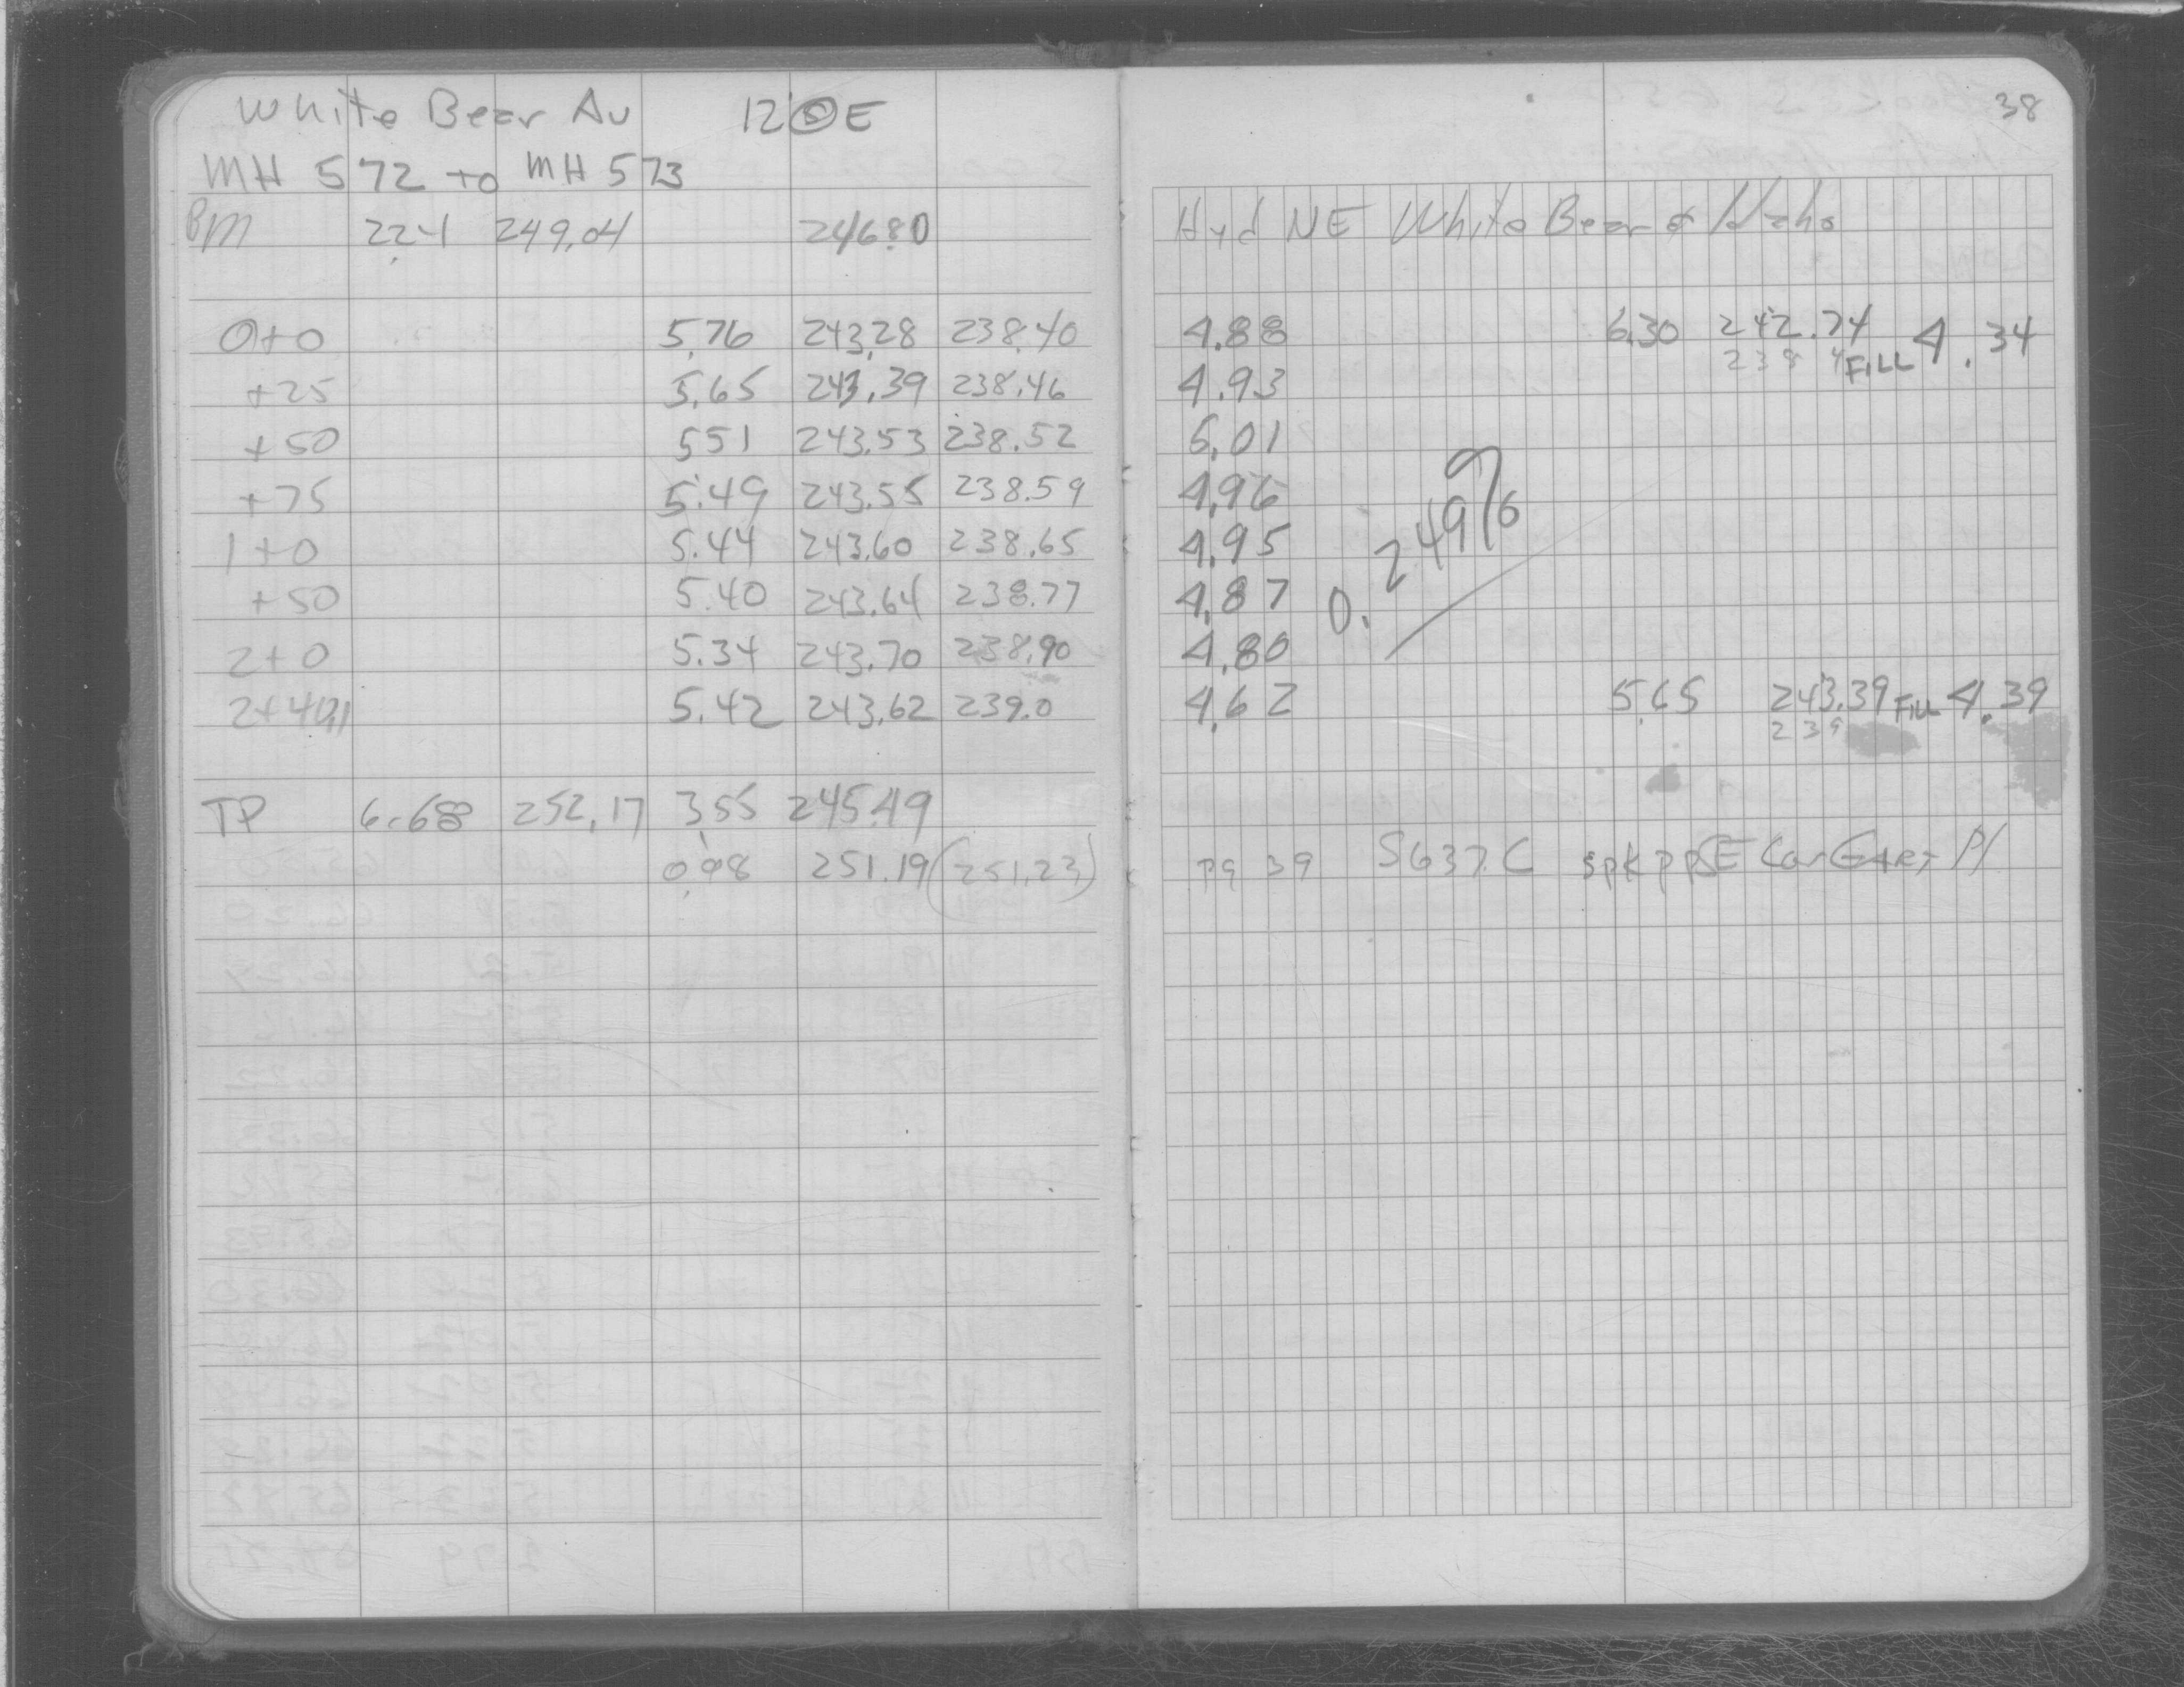 White Bear Av 12' Ⓢ E
38
MH 572 to MH 573
BM 2.24 249.04 246.80 Hyd NE White Bear & Idaho
0+0 5.76 243.28 238.40 4.88 6.30 242.74 FILL 4.34
238 4
+25 5.65 243.39 238.46 4.93
+50 5.51 243.53 238.52 5.01
+75 5.49 243.55 238.59 4.96
1+0 5.44 243.60 238.65 4.95
0.249%
+50 5.40 243.64 238.77 4.87
2+0 5.34 243.70 238.90 4.80
2+40.1 5.42 243.62 239.0 4.62 5.65 243.39 FILL 4.39
239
TP 6.68 252.17 3.55 245.49
0.98 251.19 (251.23) pg 39 S637.C spk pp SE Cor